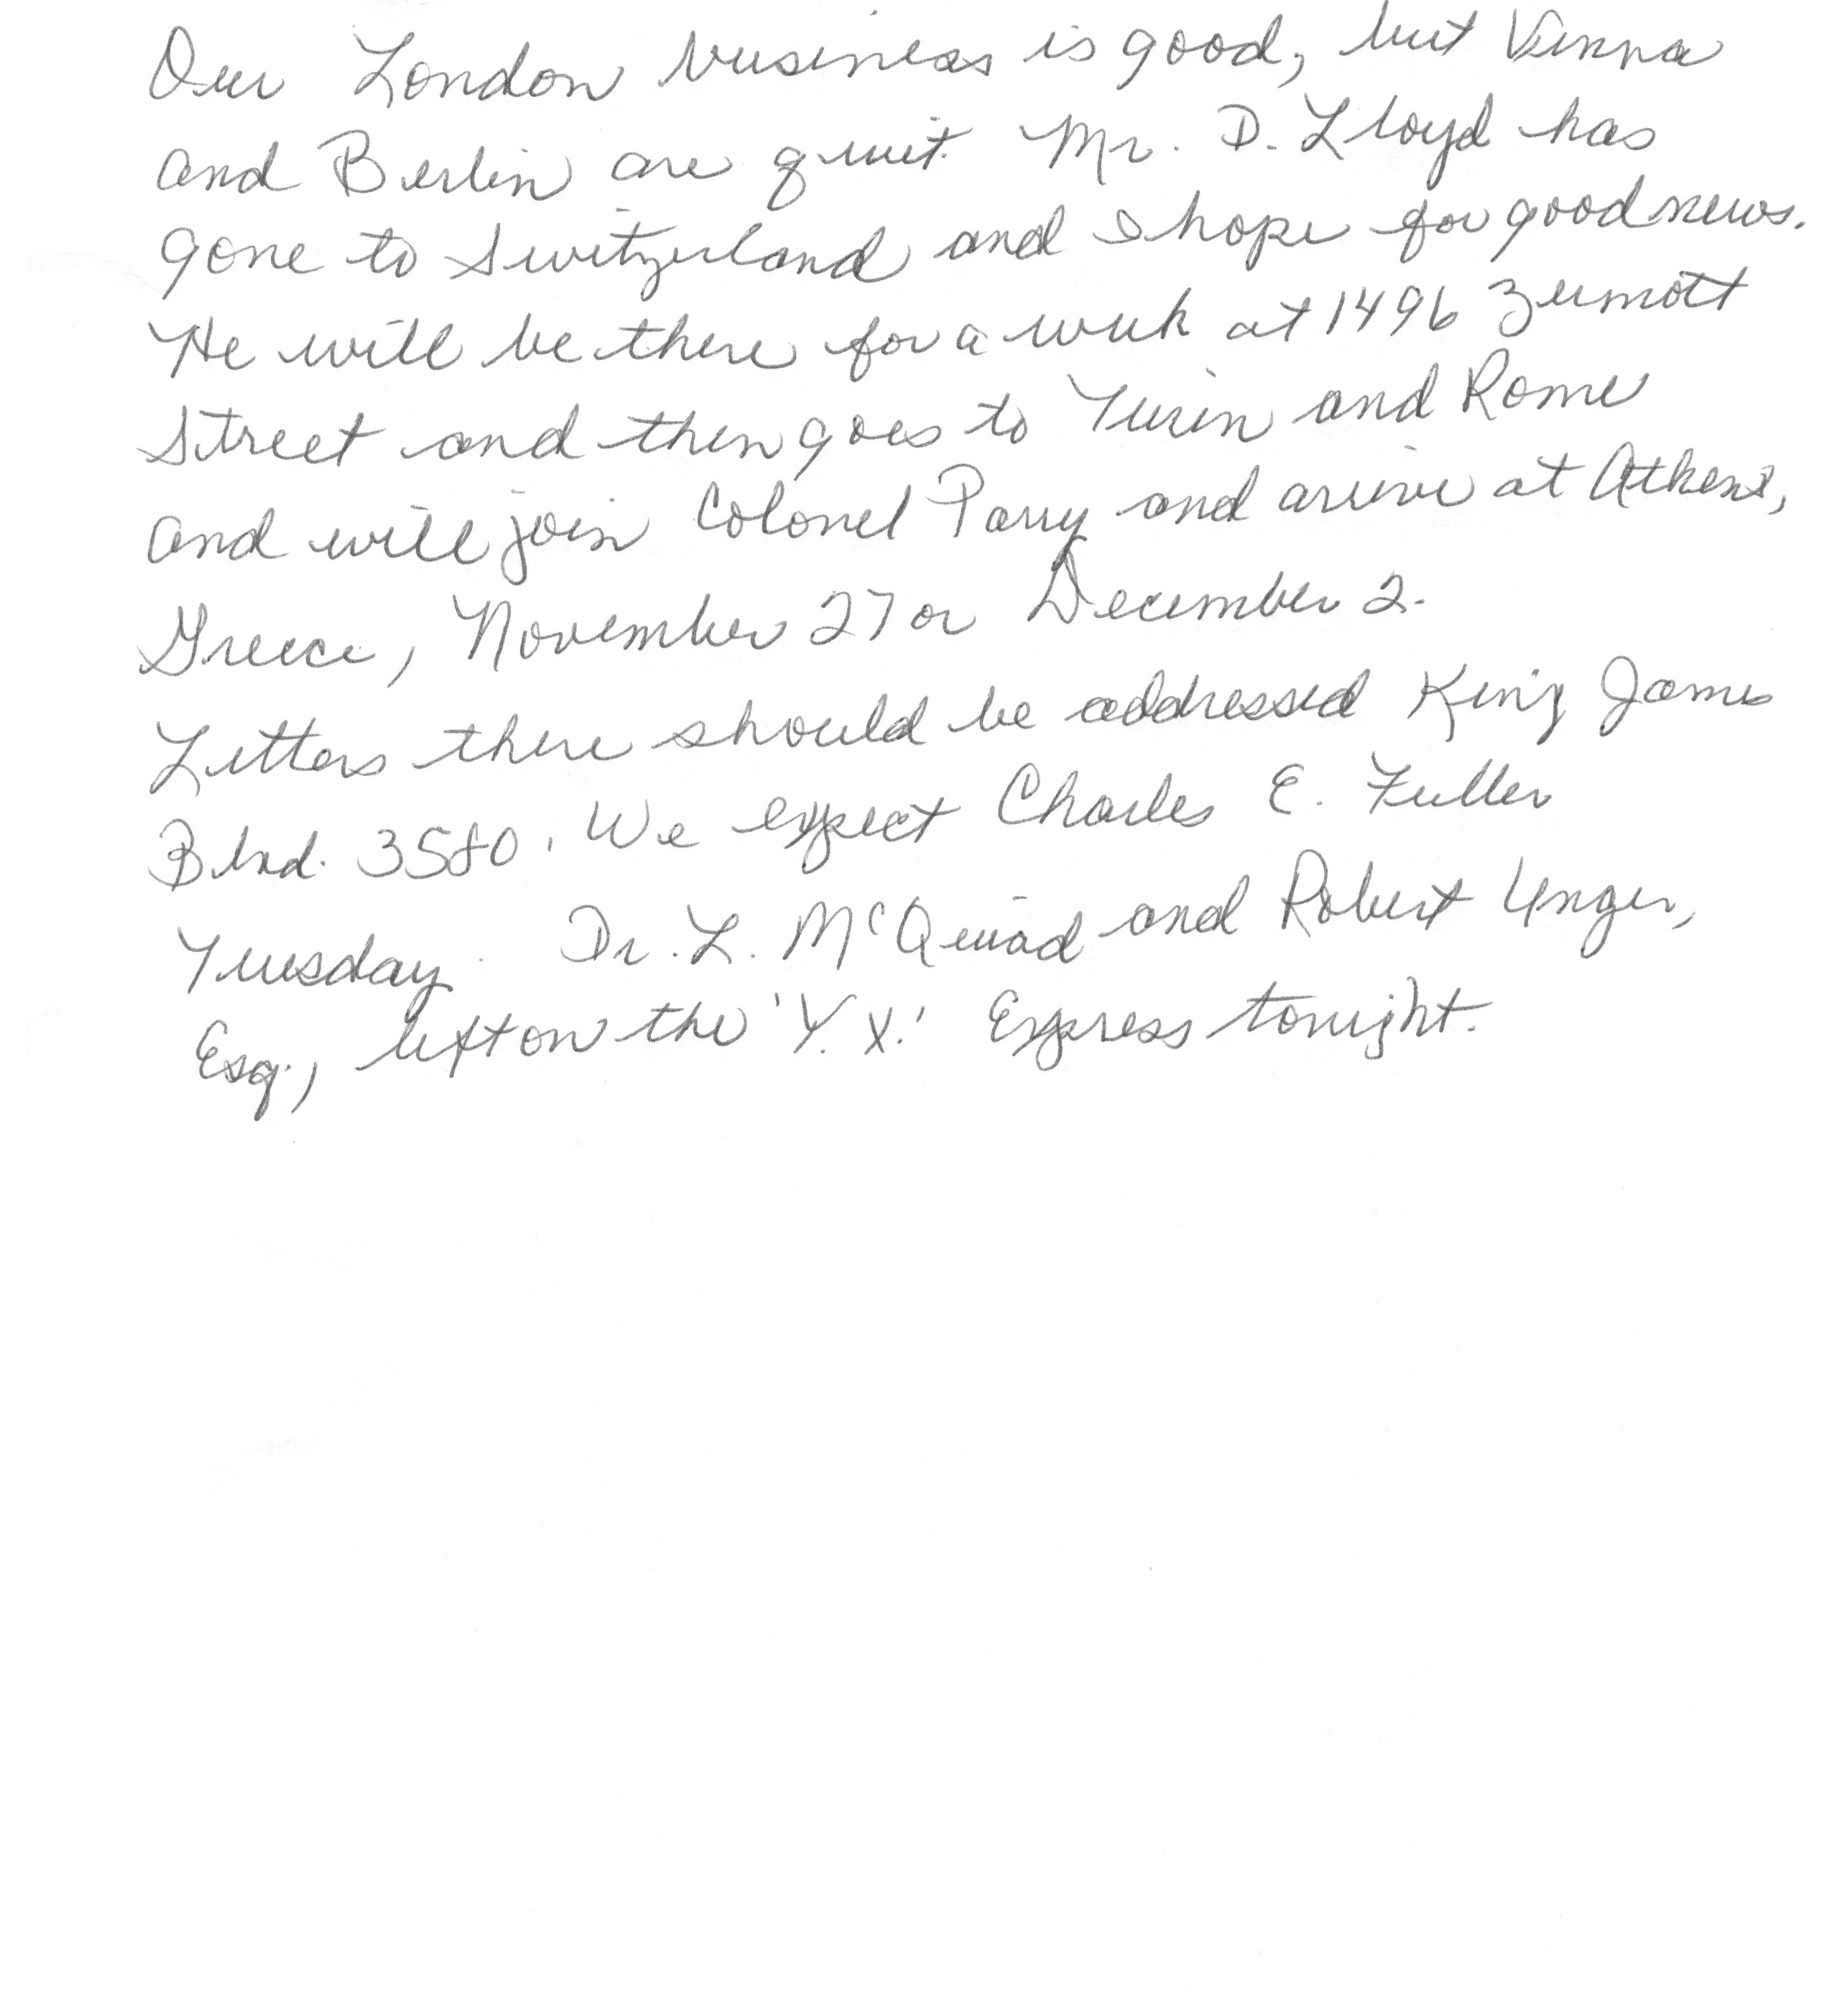 Our London business is good, but Vienna
and Berlin are quiet. Mr. D. Lloyd has
gone to Switzerland and I hope for good news.
He will be there for a week at 1496 Zermott
Street and then goes to Turin and Rome
and will join Colonel Parry and arrive at Athens,
Greece, November 27 or December 2.
Letters there should be addressed King James
Blvd. 3580. We expect Charles E. Fuller
Tuesday. Dr. L. McQuaid and Robert Unger,
Esq., left on the 'Y. X.' Express tonight.